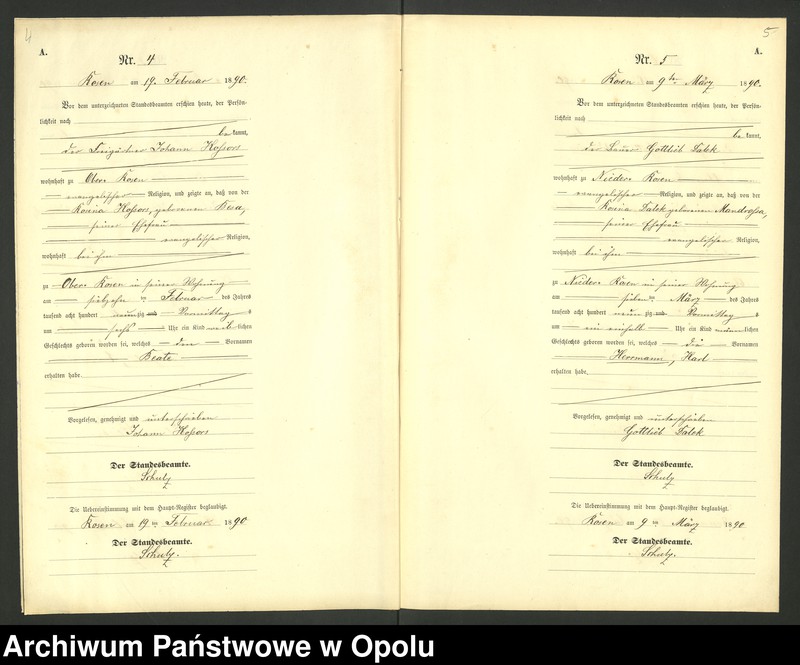 4
A.
Nr. 4
Rosen am 19. Februar 1890.
Vor dem unterzeichneten Standesbeamten erschien heute, der Persön-
lichkeit nach
be kannt,
der Freigärtner Johann Hossors
wohnhaft zu Ober Rosen
evangelischer Religion, und zeigte an, daß von der
Rosina Hossors, geborenen Beza,
seiner Ehefrau
evangelischer Religion,
wohnhaft bei ihm
zu Ober Rosen in seiner Wohnung
am siebzehn ten Februar des Jahres
tausend acht hundert neunzig Vormittags
um sechs Uhr ein Kind weiblichen
Geschlechts geboren worden sei, welches den Vornamen
Beate
erhalten habe.
Vorgelesen, genehmigt und unterschrieben
Johann Hossors
Der Standesbeamte.
Schulz
Die Uebereinstimmung mit dem Haupt-Register beglaubigt.
Rosen am 19 ten Februar 1890
Der Standesbeamte.
Schulz.
5
A.
Nr. 5
Rosen am 9ten März 1890.
Vor dem unterzeichneten Standesbeamten erschien heute, der Persön-
lichkeit nach
be kannt,
der Bauer Gottlieb Salek
wohnhaft zu Nieder Rosen
evangelischer Religion, und zeigte an, daß von der
Rosina Salek geborenen Mandrossa,
seiner Ehefrau
evangelischer Religion,
wohnhaft bei ihm
zu Nieder Rosen in seiner Wohnung
am sieben ten März des Jahres
tausend acht hundert neunzig Vormittags
um ein einhalb Uhr ein Kind männlichen
Geschlechts geboren worden sei, welches die Vornamen
Herrmann, Karl
erhalten habe.
Vorgelesen, genehmigt und unterschrieben
Gottlieb Salek
Der Standesbeamte.
Schulz
Die Uebereinstimmung mit dem Haupt-Register beglaubigt.
Rosen am 9 ten März 1890
Der Standesbeamte.
Schulz.
Archiwum Państwowe w Opolu